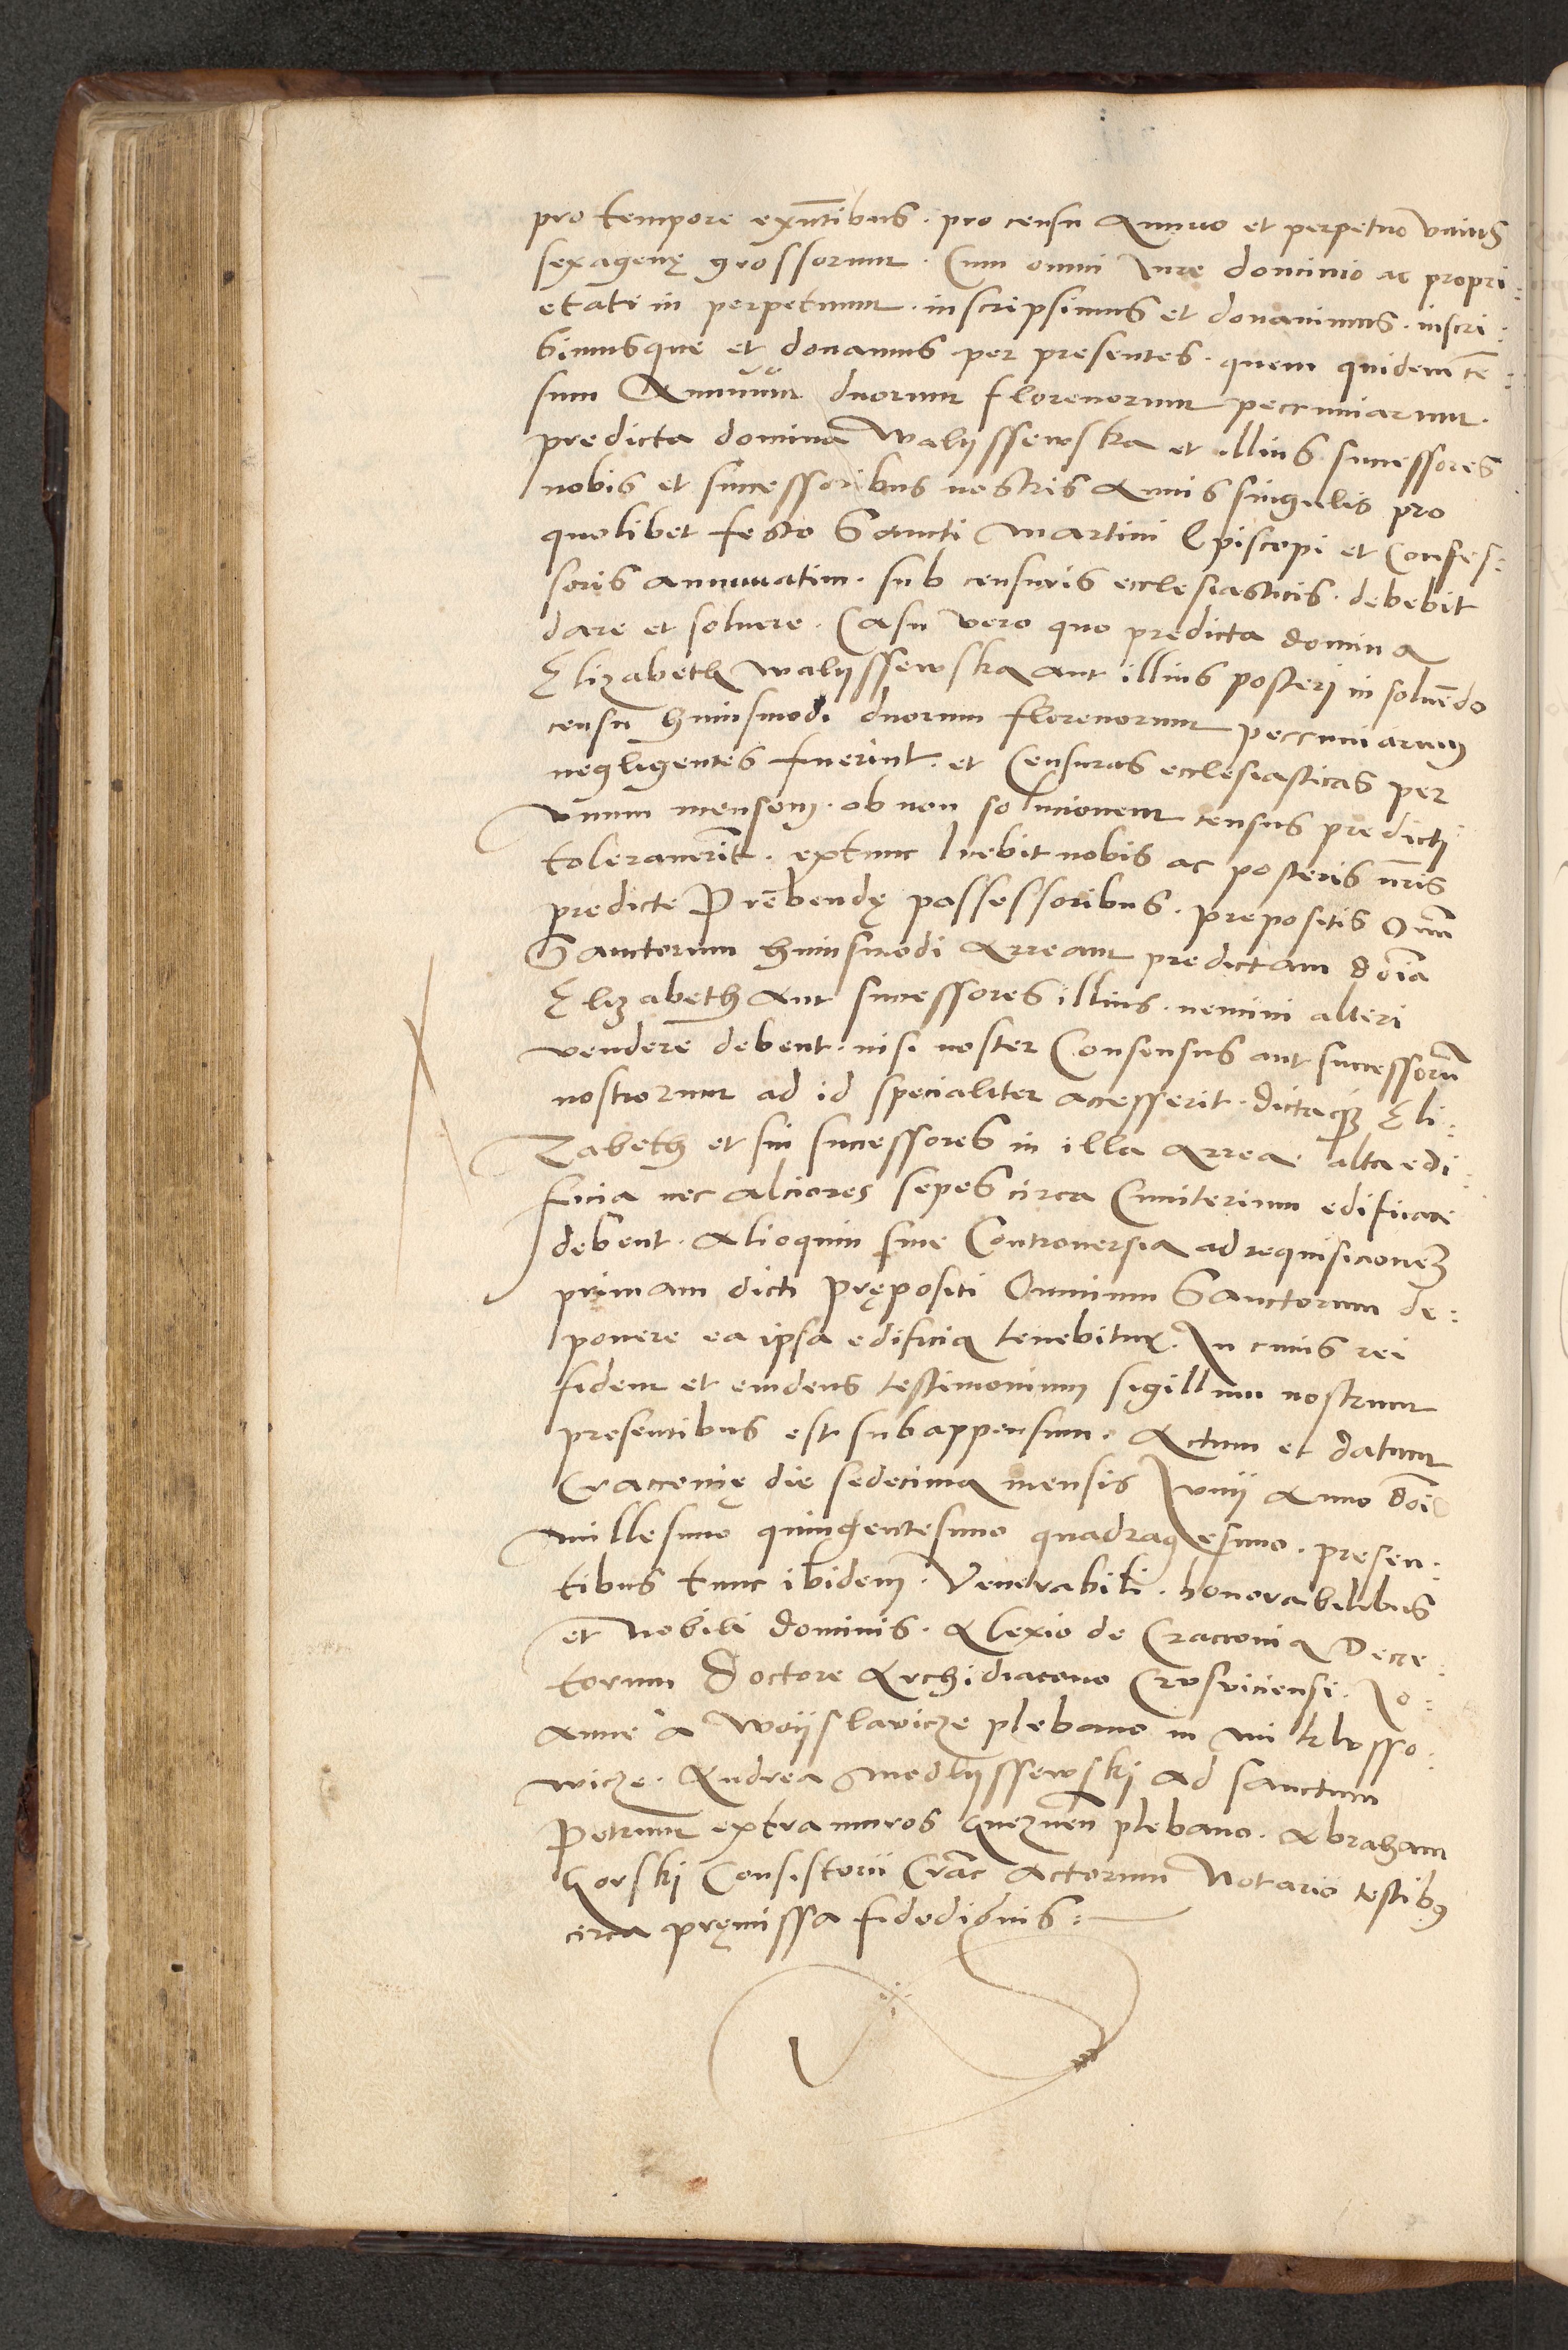 pro tempore exñtibus. pro censu Annuo et perpetuo vnius
sexagenę grossorum. Cum omni Iure dominio ac propri:
etati in perpetuum. inscripsimus et donauimus. inscri:
bimusque et donamus per presentes. quem quidem cē:
sum Annuum duorum florenorum peccuniarum.
predicta domina Walyssewska et illius successores
nobis et successoribus nostris Annis singulis pro
quolibet festo Sancti Martini Episcopi et Confes:
soris annuuatim. sub censuris ecclesiasticis. debebit
dare et soluere. Casu vero quo predicta domina
Elizabeth Walyssewska aut illius posteri in soluēdo
censu huiusmodi duorum florenorum peccuniarum
negligentes fuerint. et Censuras ecclesiasticas per
vnum mensem. ob non solucionem census predicti
tolerauerīt. extunc licebit nobis ac posteris nr̄is
predicte Prebendę possessoribus. prepositis Om̄
Sanctorum huiusmodi Arream predictam dōīa
Elizabeth aut successores illius. nemini alteri
vendere debent. nisi noster Consensus aut successorū
nostrorum ad id specialiter accesserit. dictaqꝫ Eli:
zabeth et sui successores in illa Arrea. alta edi:
ficia nec alciores sepes circa Cimiterium edificare
debent. Alioquin sine Controuersia ad requisicionem
primam dicti prępositi Omnium Sanctorum de:
ponere ea ipsa edificia tenebitur. In cuius rei
fidem et euidens testimonium sigillum nostrum
presentibus est subappensum. Actum et datum
Craccouię die sedecima mensis Iunij Anno Dōi
millesimo quingentesimo quadragesimo. presen:
tibus tunc ibidem. Venerabili. honorabilibus
et Nobili dominis. Alexio de Craccouia Decre:
torum Doctore Archidiacono Crusuiciensi. Io:
anne a Woyslavicze plebano in Miklusso:
wicze. Andrea Modlyssewskj ad sanctum
Petrum extra muros gneznen̄ plebano. Abraham
Gorskj Consistorii Crāc Actorum Notario testibꝰ
circa pręmissa fidedignis: